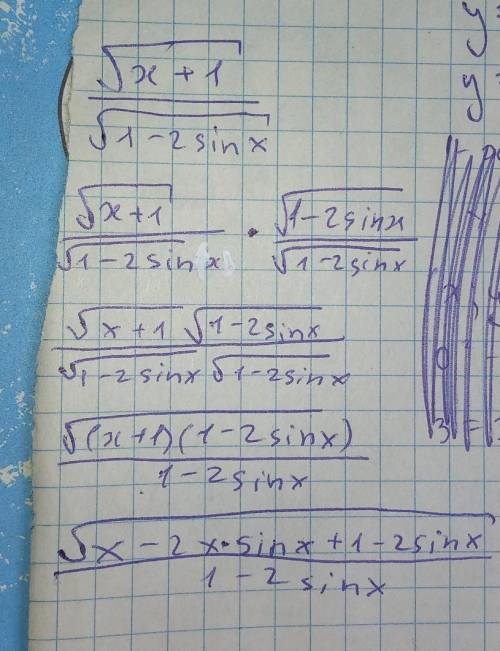 √(x + 1) / √(1 - 2 sin x)
√(x + 1) / √(1 - 2 sin x) · √(1 - 2 sin x) / √(1 - 2 sin x)
√(x + 1) √(1 - 2 sin x) / √(1 - 2 sin x) √(1 - 2 sin x)
√((x + 1)(1 - 2 sin x)) / 1 - 2 sin x
√(x - 2x · sin x + 1 - 2 sin x) / 1 - 2 sin x
y
y